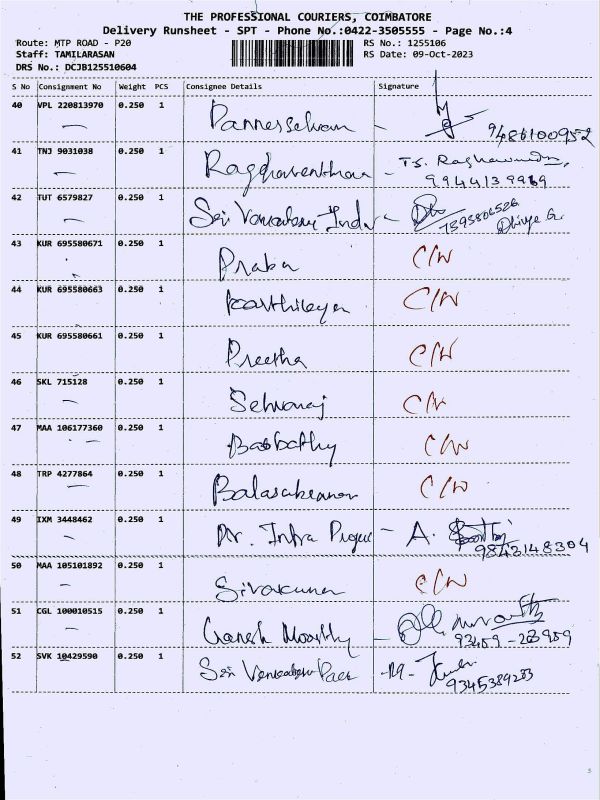 THE PROFESSIONAL COURIERS, COIMBATORE
Delivery Runsheet - SPT - Phone No.:0422-3505555 - Page No.:4
Route: MTP ROAD - P20 RS No.: 1255106
Staff: TAMILARASAN RS Date: 09-Oct-2023
DRS No.: DCJB125510604
S No Consignment No Weight PCS Consignee Details Signature
40 VPL 220813970 0.250 1
9486100952
41 TNJ 9031038 0.250 1
9944139969
42 TUT 6579827 0.250 1 Sri
43 KUR 695580671 0.250 1 Praba C/W
44 KUR 695580663 0.250 1 C/W
45 KUR 695580661 0.250 1 Preetha C/W
46 SKL 715128 0.250 1 Selvaraj C/W
47 MAA 106177360 0.250 1 C/W
48 TRP 4277864 0.250 1 C/W
49 IXM 3448462 0.250 1 Infra - A.
9842148304
50 MAA 105101892 0.250 1 Sivakumar C/W
51 CGL 100010515 0.250 1 Ganesh Moorthy
52 SVK 10429590 0.250 1 Sri
9345389203